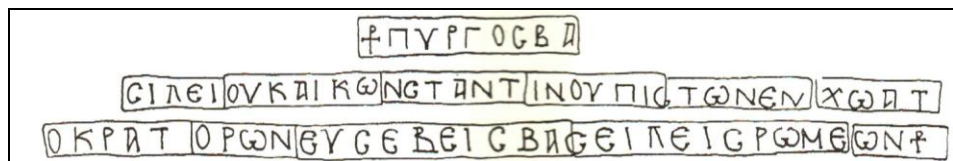 ☩ΠΥΡΓΟϹΒΑ
ϹΙΛΕΙΟΥΚΑΙΚΩΝϹΤΑΝΤΙΝΟΥΠΙϹΤΩΝΕΝΧΩΑΤ
ΟΚΡΑΤΟΡΩΝΕΥϹΕΒΕΙϹΒΑϹΕΙΛΕΙϹΡΩΜΕΩΝ☩